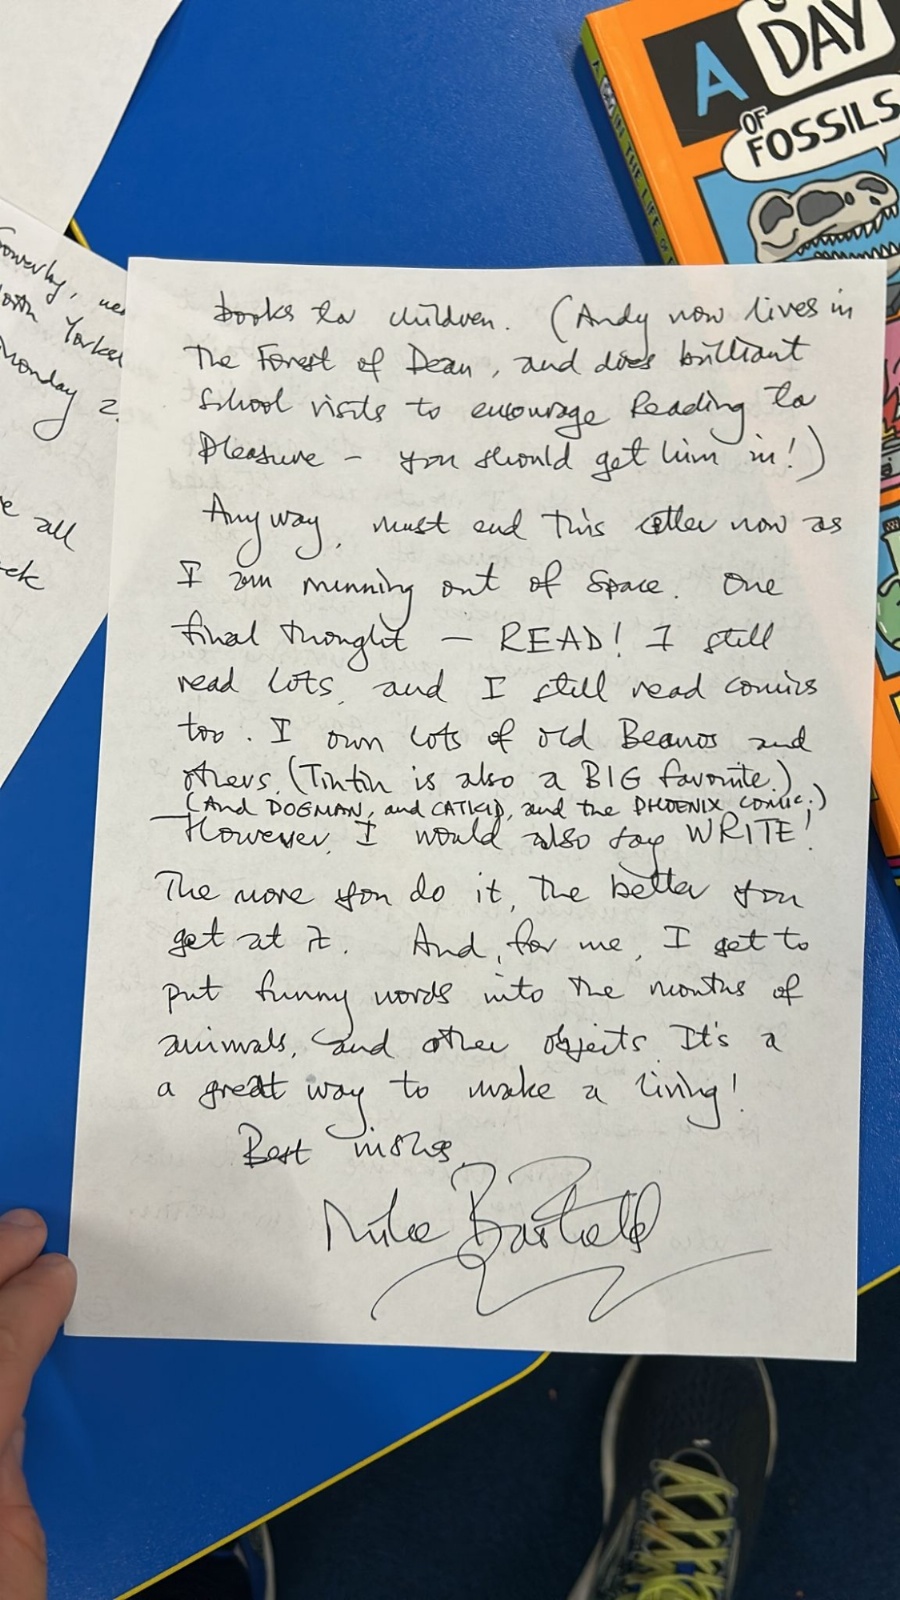 A
DAY
OF
FOSSILS
IN THE LIFE
North
Monday 2
all
books for children. (Andy now lives in
The Forest of Dean, and does brilliant
School visits to encourage Reading for
Pleasure – you should get him in!)
Anyway, must end this letter now as
I am running out of space. One
final thought – READ! I still
read lots, and I still read comics
too. I own lots of old Beanos and
others. (Tintin is also a BIG favorite.)
(And DOGMAN, and CATKID, and the PHOENIX comic.)
However, I would also say WRITE!
The more you do it, the better you
get at it. And, for me, I get to
put funny words into the mouths of
animals, and other objects. It's a
a great way to make a living!
Best wishes,
Mike Barfield